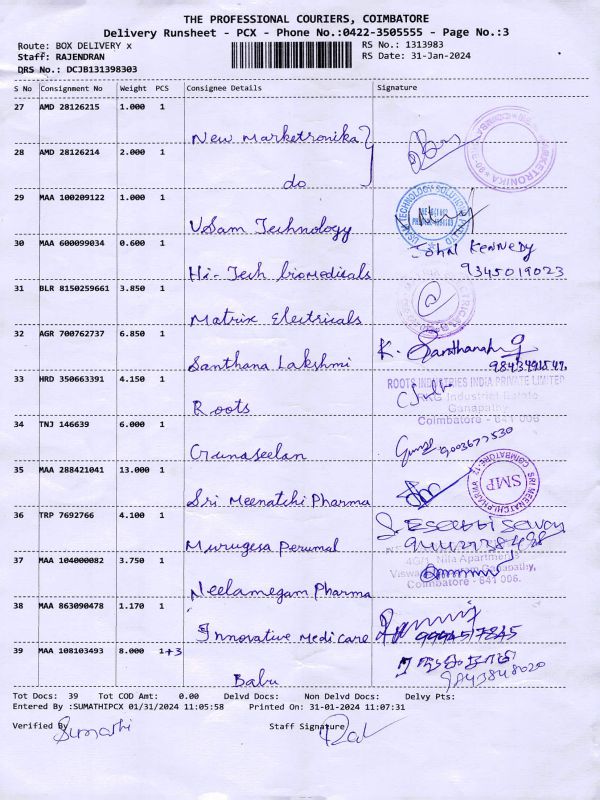 THE PROFESSIONAL COURIERS, COIMBATORE
Delivery Runsheet - PCX - Phone No.:0422-3505555 - Page No.:3
Route: BOX DELIVERY x RS No.: 1313983
Staff: RAJENDRAN RS Date: 31-Jan-2024
DRS No.: DCJB131398303
S No Consignment No Weight PCS Consignee Details Signature
27 AMD 28126215 1.000 1
New Marketronika
28 AMD 28126214 2.000 1
do
29 MAA 100209122 1.000 1
USam Technology
30 MAA 600099034 0.600 1 JOHN KENNEDY
Hi-Tech biomedicals 9345019023
31 BLR 8150259661 3.850 1
Matrix Electricals
32 AGR 700762737 6.850 1
Santhana Lakshmi K.
33 HRD 350663391 4.150 1 ROOTS INDUSTRIES INDIA PRIVATE LIMITED
Roots Ganapathy
Coimbatore - 641 006
34 TNJ 146639 6.000 1
Gunaseelan 9003677530
35 MAA 288421041 13.000 1
SMP
Sri Meenatchi Pharma
36 TRP 7692766 4.100 1
Murugesa Perumal
37 MAA 104000082 3.750 1 Nila Apartments
Ganapathy,
Neelamegam Pharma Coimbatore - 641 006.
38 MAA 863090478 1.170 1
Innovative Medicare
39 MAA 108103493 8.000 1+3
Babu
Tot Docs: 39 Tot COD Amt: 0.00 Delvd Docs: Non Delvd Docs: Delvy Pts:
Entered By :SUMATHIPCX 01/31/2024 11:05:58 Printed On: 31-01-2024 11:07:31
Verified By Sumathi Staff Signature